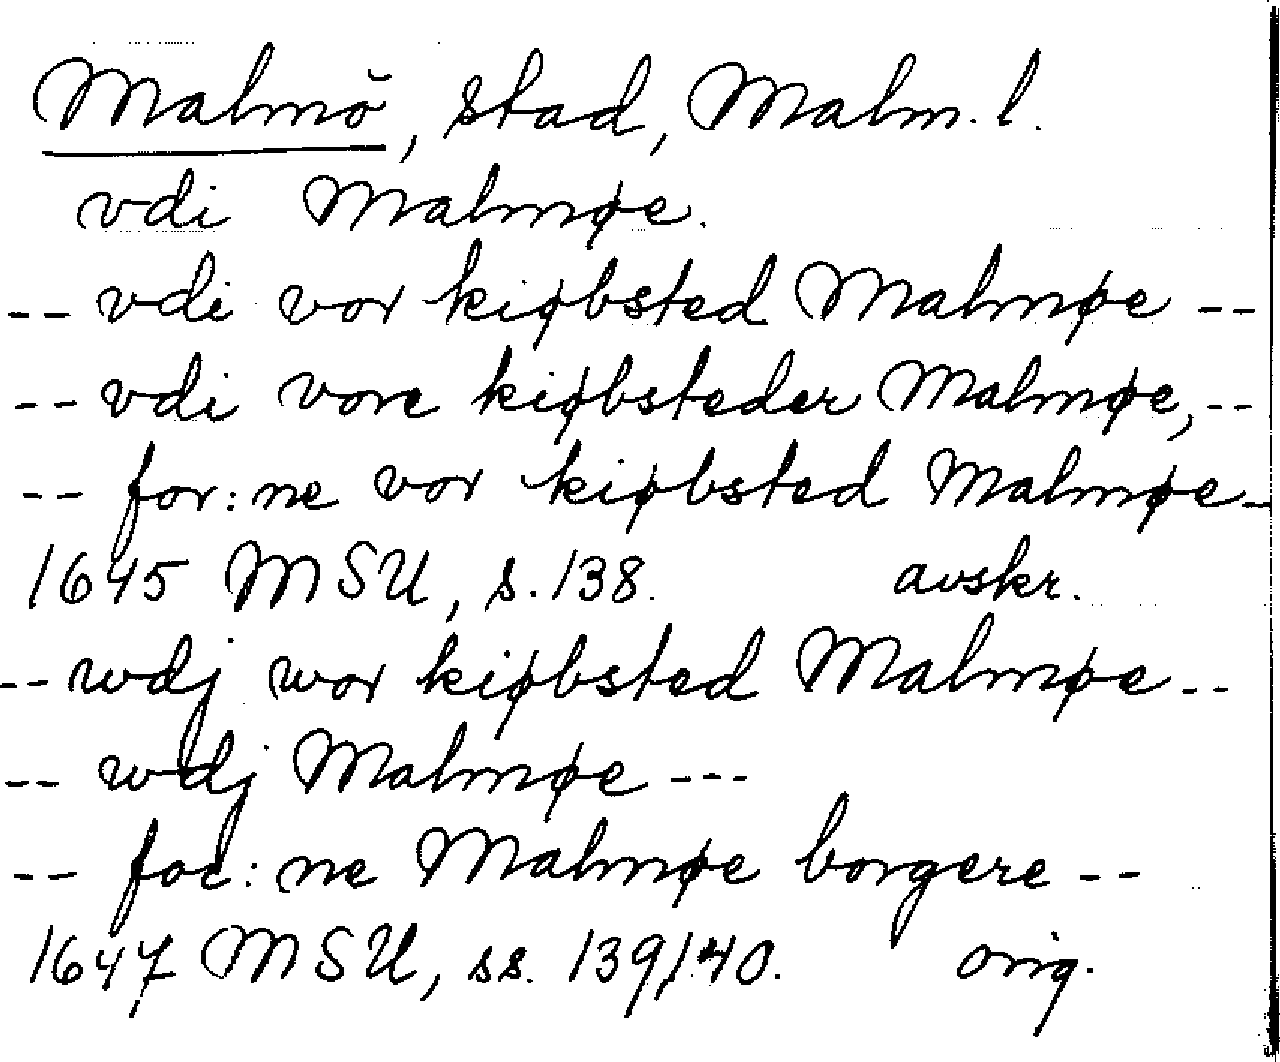 Malmö, stad, Malm. l.
vdi Malmøe.
-- vdi vor kiøbsted Malmøe --
-- vdi vore kiøbsteder Malmøe, --
-- for:ne vor kiøbsted Malmøe -
1645 MSU, s. 138. avskr.
-- wdj wor kiøbsted Malmøe --
-- wdj Malmøe ---
-- foe:ne Malmøe borgere --
1647 MSU, ss. 139/140. orig.